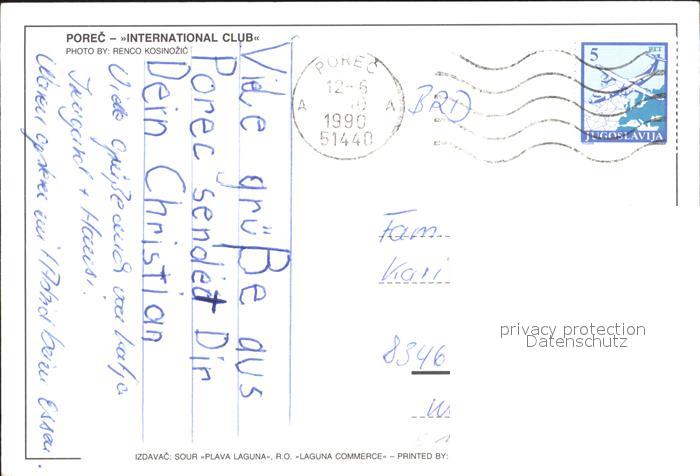 POREČ – »INTERNATIONAL CLUB«
PHOTO BY: RENCO KOSINOŽIĆ
Vile grüße aus
Porec sendet Dir
Dein Christian
Viele Grüße auch von
Irmgard + Hansi.
beim Essen.
POREČ
12-6
A A
1990
51440
BRD
5
JUGOSLAVIJA
Fam.
Kari
8346
privacy protection
Datenschutz
IZDAVAČ: SOUR »PLAVA LAGUNA«, R.O. »LAGUNA COMMERCE« – PRINTED BY: